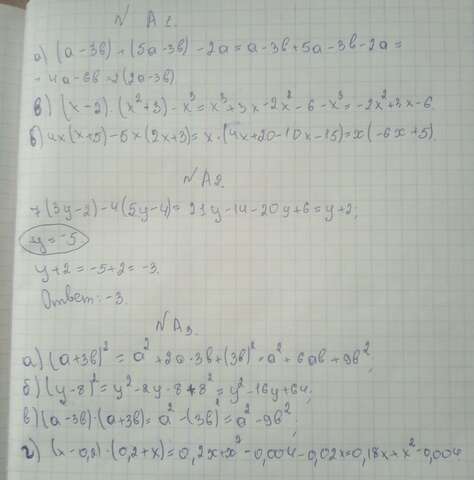 N A1.
а) (a-3b)+(5a-3b)-2a=a-3b+5a-3b-2a=
=4a-6b=2(2a-3b)
в) (x-2)·(x²+3)-x³=x³+3x-2x²-6-x³=-2x²+3x-6
б) 4x(x+5)-5x(2x+3)=x·(4x+20-10x-15)=x(-6x+5).
N A2.
7(3y-2)-4(5y-4)=21y-14-20y+6=y+2;
y=-5
y+2=-5+2=-3.
Ответ: -3.
N A3.
а) (a+3b)²=a²+2a·3b+(3b)²=a²+6ab+9b²;
б) (y-8)²=y²-2y·8+8²=y²-16y+64;
в) (a-3b)·(a+3b)=a²-(3b)²=a²-9b²;
г) (x-0,2)·(0,2+x)=0,2x+x²-0,004-0,02x=0,18x+x²-0,004